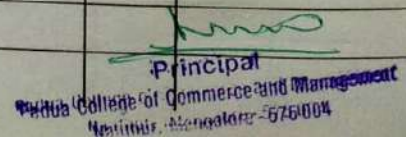 Principal
Padua College of Commerce and Management
Mangalore - 575 004